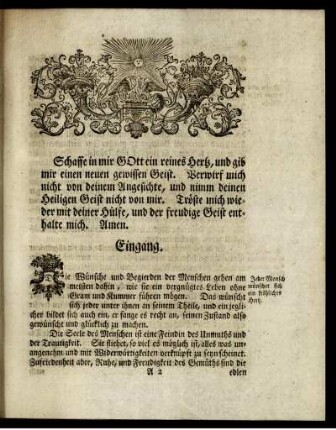 Schaffe in mir GOtt ein reines Hertz, und gib
mir einen neuen gewissen Geist. Verwirf mich
nicht von deinem Angesichte, und nimm deinen
Heiligen Geist nicht von mir. Tröste mich wie-
der mit deiner Hülfe, und der freudige Geist ent-
halte mich. Amen.
Eingang.
Die Wünsche und Begierden der Menschen gehen am
meisten dahin, wie sie ein vergnügtes Leben ohne
Gram und Kummer führen mögen. Das wünscht
sich jeder unter ihnen an seinem Theile, und ein jegli-
cher bildet sich auch ein, er fange es recht an, seinen Zustand also
gewünscht und glücklich zu machen.
Jeder Mensch
wünschet sich
ein fröhliches
Hertz.
Die Seele des Menschen ist eine Feindin des Unmuths und
der Traurigkeit. Sie fliehet, so viel es möglich ist, alles was un-
angenehm und mit Widerwärtigkeiten verknüpft zu seyn scheinet.
Zufriedenheit aber, Ruhe, und Freudigkeit des Gemüths sind die
A 2 edlen